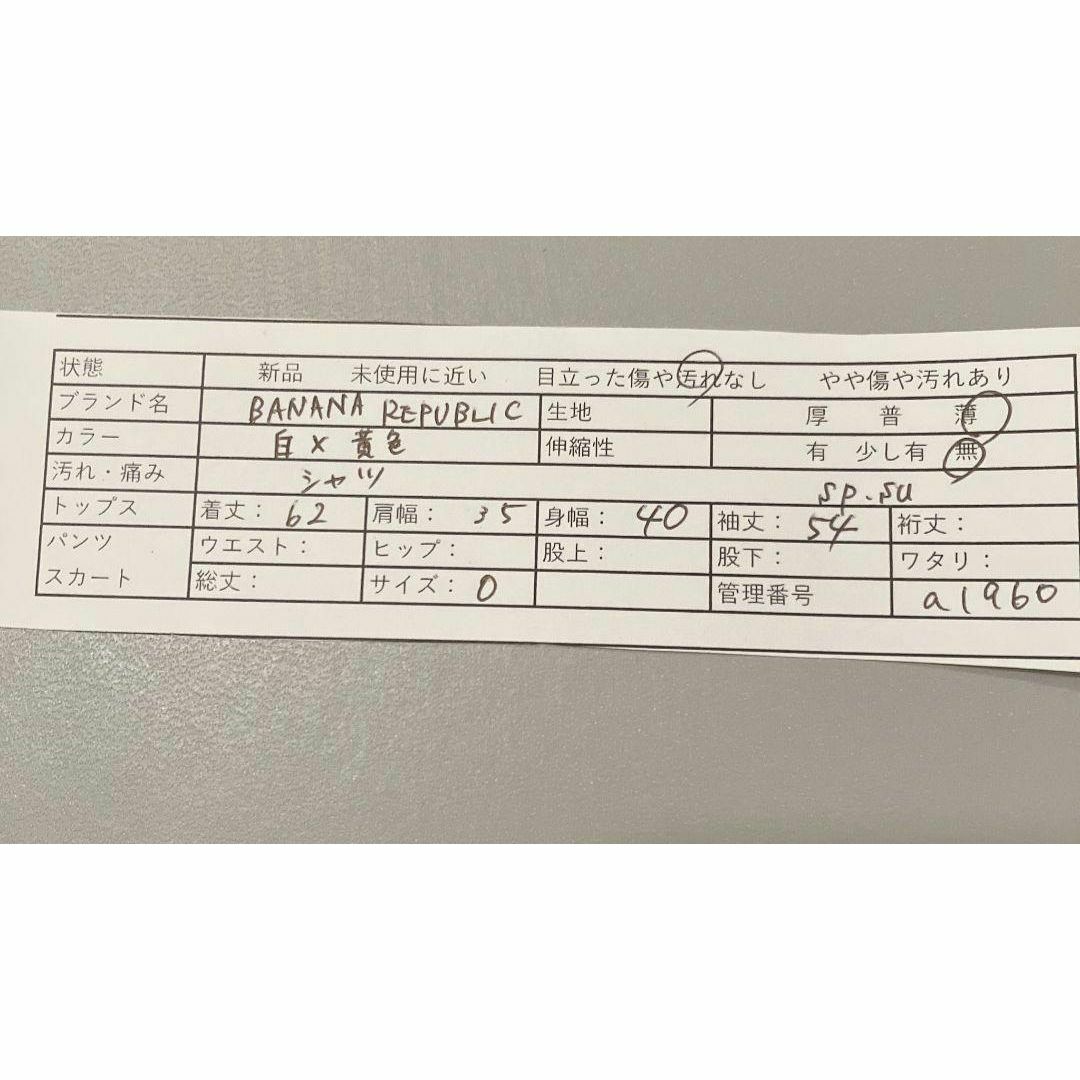 状態 新品 未使用に近い 目立った傷や汚れなし やや傷や汚れあり
ブランド名 BANANA REPUBLIC 生地 厚 普 薄
カラー 白×黄色 伸縮性 有 少し有 無
汚れ・痛み シャツ sp.su
トップス 着丈:62 肩幅:35 身幅:40 袖丈:54 裄丈:
パンツ ウエスト: ヒップ: 股上: 股下: ワタリ:
スカート 総丈: サイズ:0 管理番号 a1960